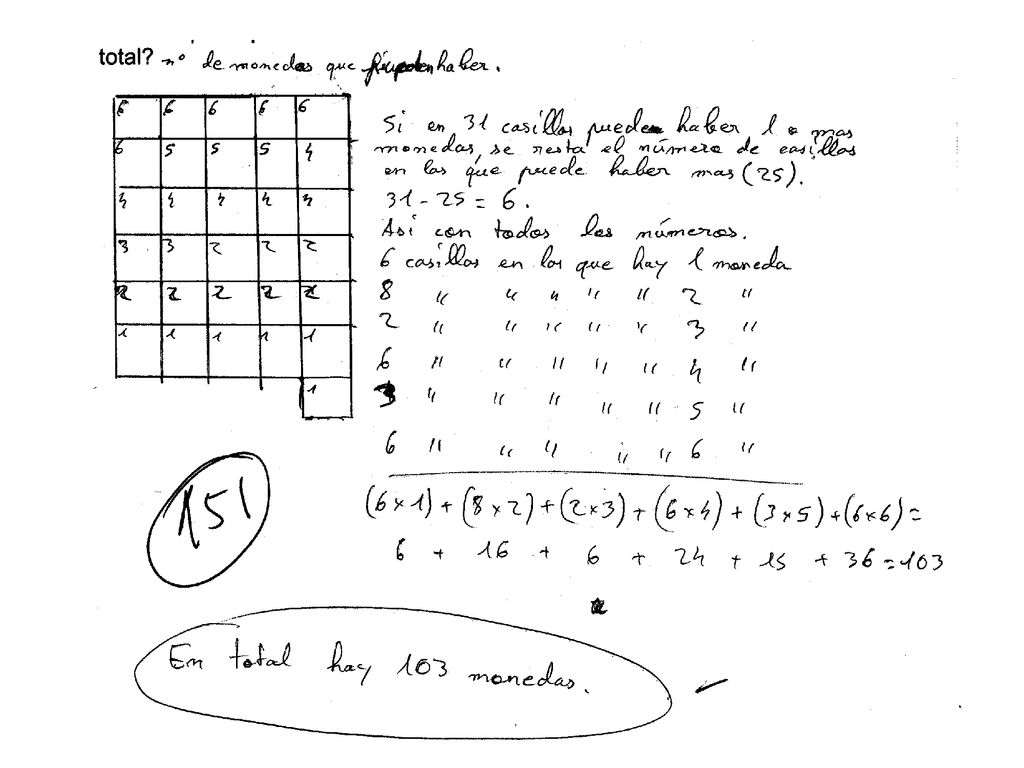 total? nº de monedas que pueden haber.
6 6 6 6 6
6 5 5 5 4
4 4 4 4 4
3 3 2 2 2
2 2 2 2 2
1 1 1 1 1
1
Si en 31 casillas pueden haber 1 o mas
monedas, se resta el número de casillas
en las que puede haber mas (25).
31 - 25 = 6.
Asi con todos los números.
6 casillas en las que hay 1 moneda
8 " " " " " 2 "
2 " " " " " 3 "
6 " " " " " 4 "
3 " " " " " 5 "
6 " " " " " 6 "
(6 x 1) + (8 x 2) + (2 x 3) + (6 x 4) + (3 x 5) + (6 x 6) =
6 + 16 + 6 + 24 + 15 + 36 = 103
151
En total hay 103 monedas.